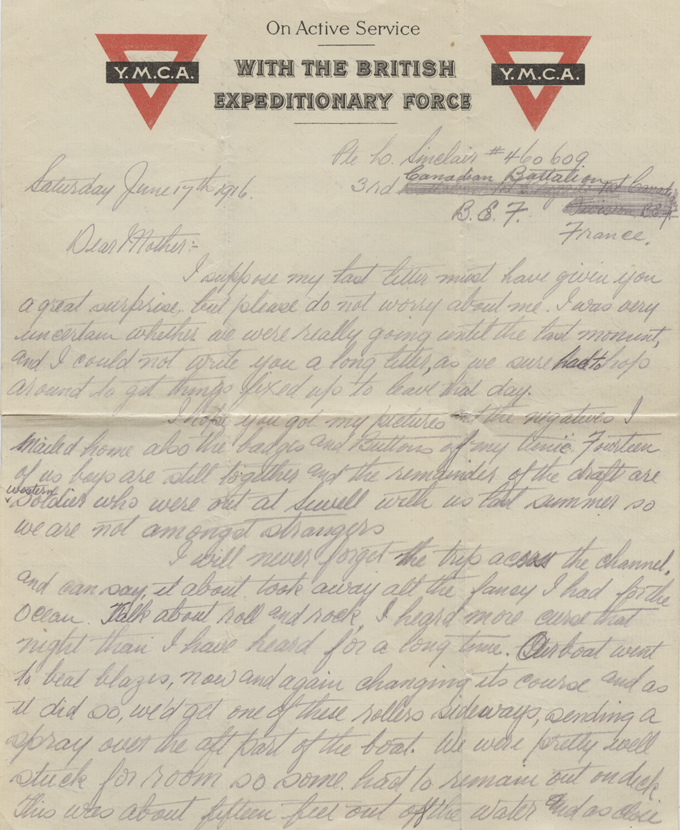 On Active Service
Y.M.C.A. WITH THE BRITISH Y.M.C.A.
EXPEDITIONARY FORCE
Pte L. Sinclair #460609
Saturday June 17th 1916.
3rd Canadian Battalion
B.E.F.
France.
Dear Mother:-
I suppose my last letter must have given you
a great surprise, but please do not worry about me. I was very
uncertain whether we were really going until the last moment,
and I could not write you a long letter, as we sure had to hop
around to get things fixed up to leave that day.
I hope you got my pictures the negatives I
mailed home also the badges and buttons of my tunic. Fourteen
of us boys are still together and the remainder of the draft are
western
soldier who were out at Sewell with us last summer so
we are not amongst strangers
I will never forget the trip across the channel,
and can say, it about took away all the fancy I had for the
Ocean. Talk about roll and rock, I heard more curse that
night than I have heard for a long time. Our boat went
to beat blazes, now and again changing its course and as
it did so, we'd get one of these rollers sideways, sending a
spray over the aft part of the boat. We were pretty well
stuck for room so some had to remain out on deck
this was about fifteen feet out off the water and as close